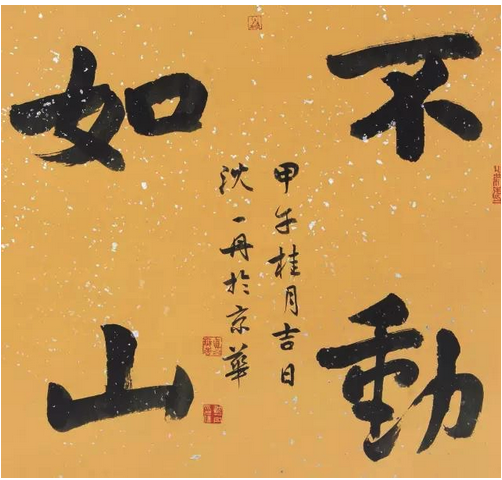 不動
如山
甲午桂月吉日
沈一丹於京華